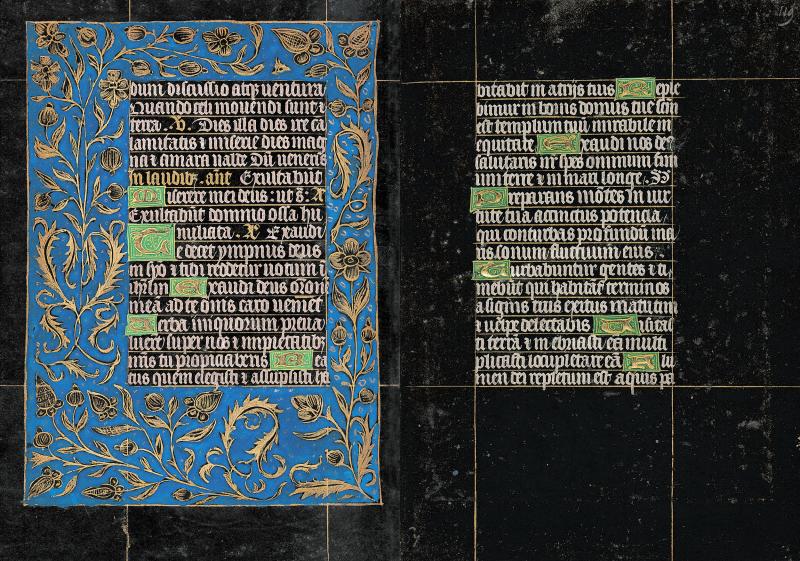 dum discussio atq; ventura
Quando celi movendi sunt &
terra. v. Dies illa dies ire ca
lamitatis & miserie dies mag
na & amara valde Dū veneris
in laudib; añe Exultabūt
Miserere mei deus: ut s:
Exultabūt domino ossa hu
miliata. Exaudi
Te decet ympnus deus
in syō & tibi reddetur votum i
Exaudi deus oron
meā ad te omis caro veniet
Verba iniquorum preva
luert super nos & impietatib;
nr̄is tu propiciaberis Bea
tus quem elegisti & assupsisti ha
bitabit in atrijs tuis Reple
bimur in bonis domus tue scm
est templum tuū mirabile in
equitate Exaudi nos de
salutaris nr̄ spes omnium fini
um terre & in mari longe.
Preparans mōtes in vir
tute tua accinctus potencia
qui conturbas profundū ma
ris sonum fluctuum eius
Turbabuntur gentes & ti
mebūt qui habitāt terminos
a signis tuis exitus matutini
& vespe delectabis Visitas
ti terrā & inebriasti eā multi
plicasti locupletare eā Flu
men dei repletum est aquis pa